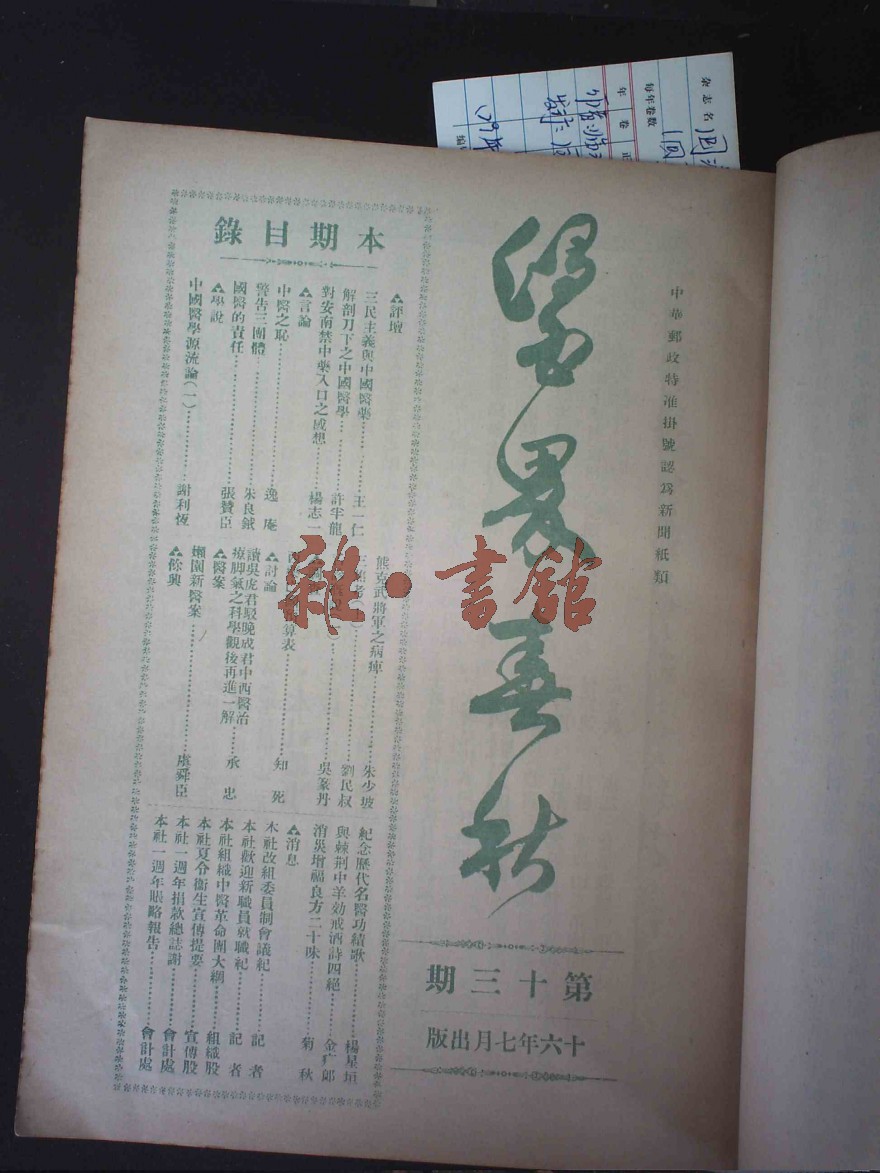 中華郵政特准掛號認爲新聞紙類
醫界春秋
第十三期
十六年七月出版
本期目錄
▲評壇
三民主義與中國醫藥 王一仁
解剖刀下之中國醫學 許半龍
對安南禁中藥入口之感想 楊志一
▲言論
中醫之恥 逸庵
警告三團體 朱良鉞
國醫的責任 張贊臣
▲學說
中國醫學源流論(一) 謝利恆
熊克武將軍之病痺 朱少坡
劉民叔
吳篆丹
算表
▲討論 知死
讀吳虎君駁晚成君中西醫治
療脚氣之科學觀後再進一解 承忠
▲醫案
嬾園新醫案 虞舜臣
▲餘興
紀念歷代名醫功績歌 楊星垣
與棘荆中羊効戒酒詩四絕 金广郎
消災增福良方二十味 菊秋
▲消息
本社改組委員制會議紀 記者
本社歡迎新職員就職紀 記者
本社組織中醫革命團大綱 組織股
本社夏令衞生宣傳提要 宣傳股
本社一週年捐款總誌謝 會計處
本社一週年賬略報告 會計處
雜·書館
杂志名
每年卷数
年
卷